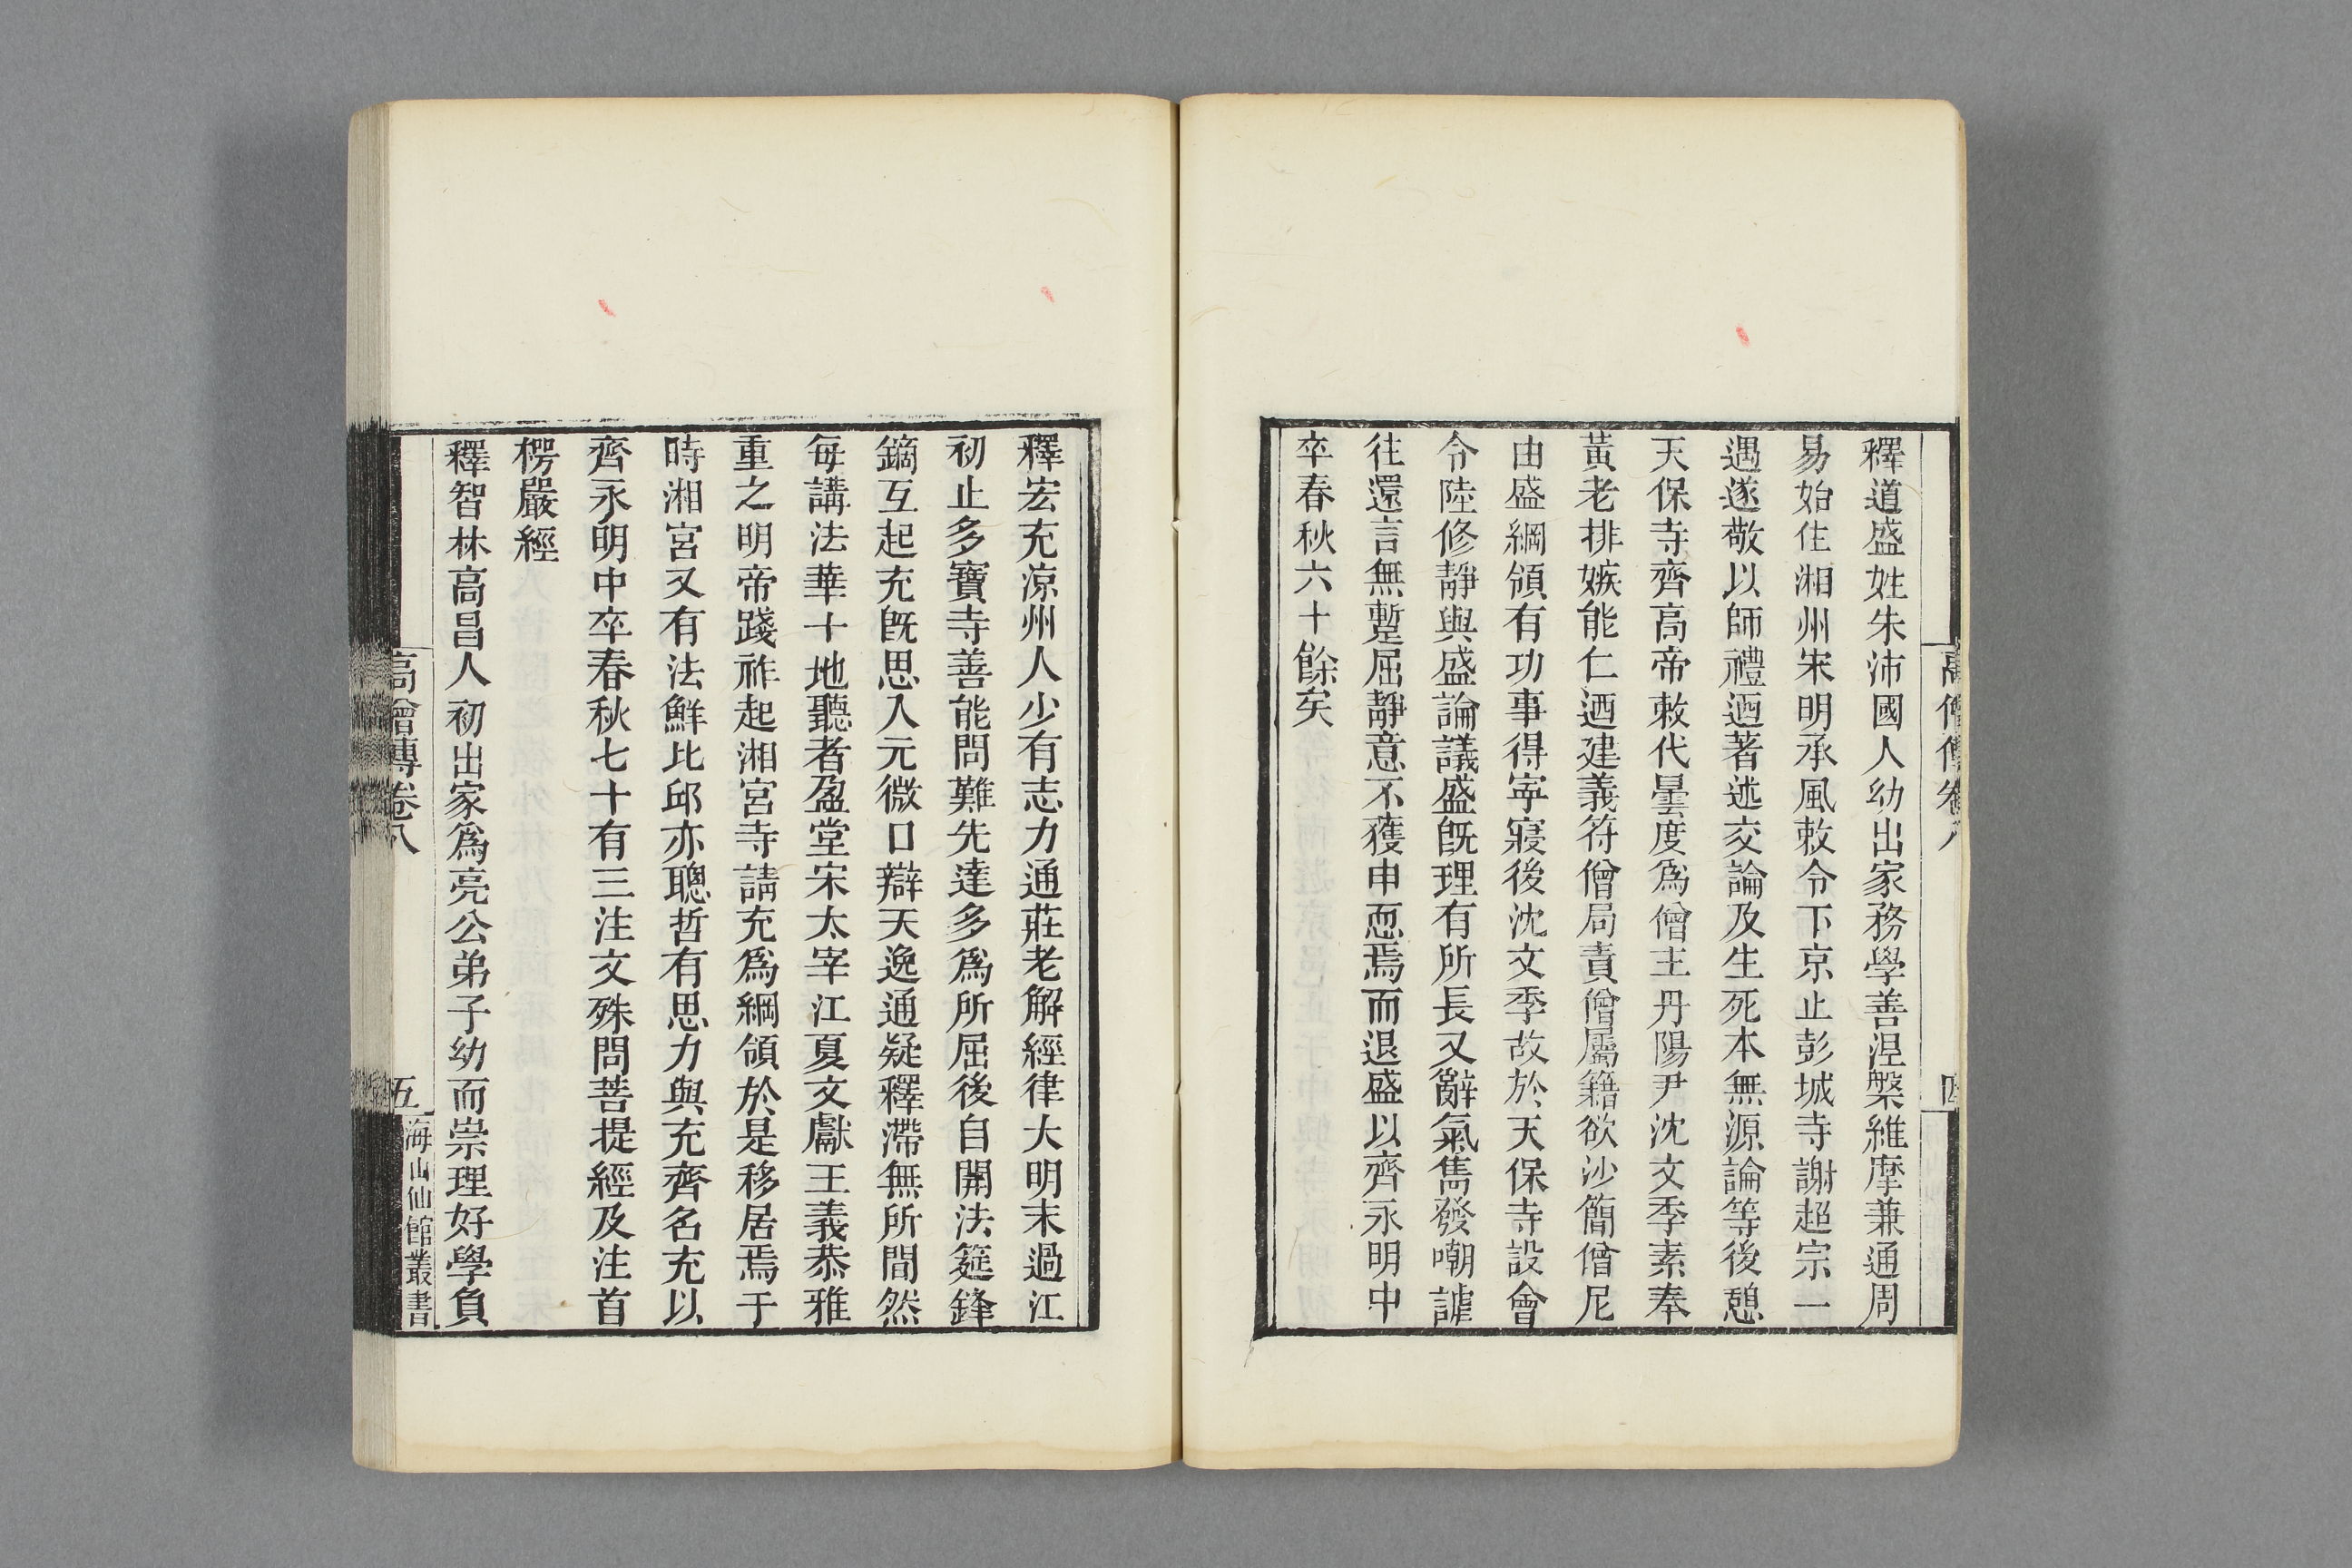 高僧傳卷八
四
釋道盛姓朱沛國人幼出家務學善涅槃維摩兼通周
易始住湘州宋明承風敕令下京止彭城寺謝超宗一
遇遂敬以師禮迺著述交論及生死本無源論等後憩
天保寺齊高帝敕代曇度爲僧主丹陽尹沈文季素奉
黃老排嫉能仁迺建義符僧局責僧屬籍欲沙簡僧尼
由盛綱領有功事得寜寢後沈文季故於天保寺設會
令陸修靜與盛論議盛旣理有所長又辭氣雋發嘲謔
往還言無蹔屈靜意不獲申恧焉而退盛以齊永明中
卒春秋六十餘矣
釋宏充涼州人少有志力通莊老解經律大明末過江
初止多寶寺善能問難先達多爲所屈後自開法筵鋒
鏑互起充旣思入元微口辯天逸通疑釋滯無所間然
每講法華十地聽者盈堂宋太宰江夏文獻王義恭雅
重之明帝踐祚起湘宮寺請充爲綱領於是移居焉于
時湘宮又有法鮮比邱亦聰哲有思力與充齊名充以
齊永明中卒春秋七十有三注文殊問菩提經及注首
楞嚴經
釋智林高昌人初出家爲亮公弟子幼而崇理好學負
高僧傳卷八
五
海山仙館叢書